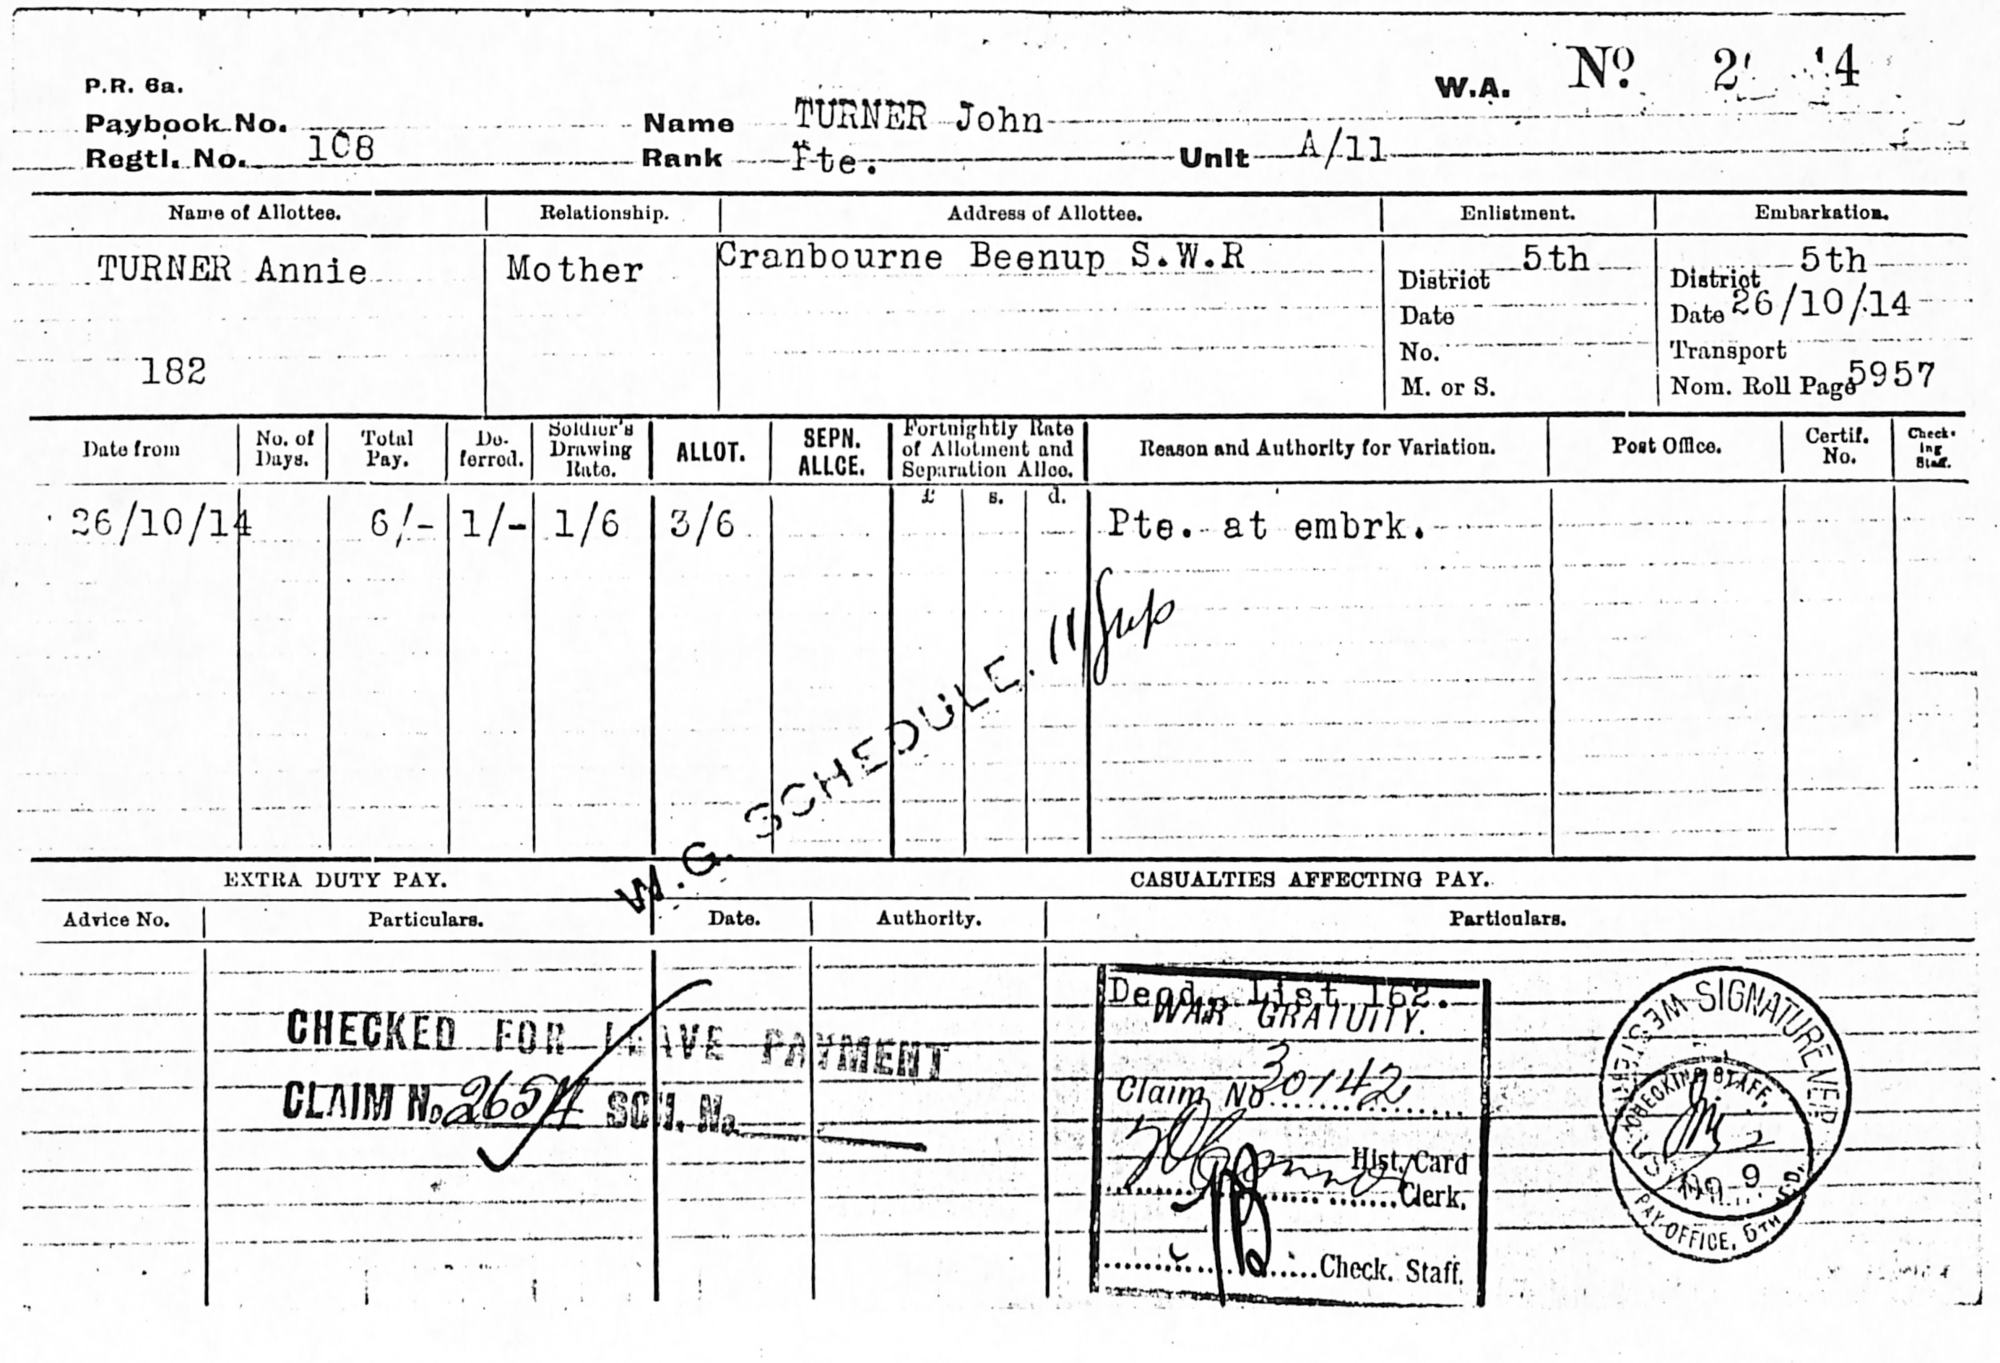 P.R. 6a.
W.A. No.
Paybook No.
Name TURNER John
Regtl. No. 108
Rank Pte. Unit A/11
Name of Allottee. Relationship. Address of Allottee. Enlistment. Embarkation.
TURNER Annie Mother Cranbourne Beenup S.W.R District 5th District 5th
Date Date 26/10/14
182 No. Transport
M. or S. Nom. Roll Page 5957
Date from No. of Days. Total Pay. De-ferred. Soldier's Drawing Rate. ALLOT. SEPN. ALLCE. Fortnightly Rate of Allotment and Separation Allce. Reason and Authority for Variation. Post Office. Certif. No. Check-ing Staff.
£ s. d.
26/10/14 6/- 1/- 1/6 3/6 Pte. at embrk.
W.G. SCHEDULE. 11
EXTRA DUTY PAY. CASUALTIES AFFECTING PAY.
Advice No. Particulars. Date. Authority. Particulars.
Dead. List 162.
WAR GRATUITY.
CHECKED FOR LEAVE PAYMENT
Claim No 30142
CLAIM No SCH. No
Hist. Card
Clerk.
Check. Staff.
SIGNATURE
CHECKING STAFF,
9
PAY OFFICE, 5TH